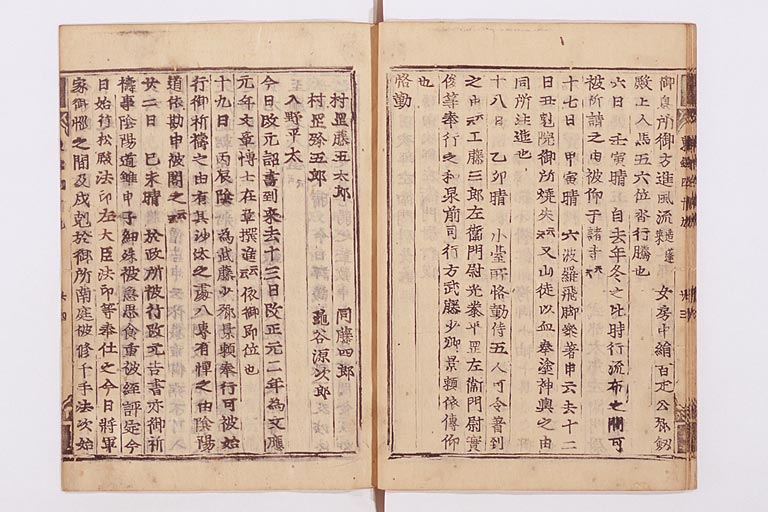 御息所御方進風流 女房中繪百疋公弥釼
殿上人馬五六位沓行騰也
六日 壬寅晴 自去年冬之比時行流布之間可
被祈請之由被仰于諸寺云云
十七日 甲寅晴 六波羅飛脚參著申云去十二
日丑剋院御所燒失云云又山徒以血奉塗神輿之由
同所注進也
十八日 乙卯晴 小基所恪勤侍五人可令著到
之由云云工藤三郎左衞門尉光泰平罡左衞門尉實
俊等奉行之和泉前司行方武藤少卿景頼依傳仰
也
恪勤
村罡藤五太郎 同藤四郎
村罡弥五郎 龜谷源次郎
入野平太
今日改元詔書到來去十三日改正元二年為文應
元年文章博士在章撰進云云依御即位也
十九日 丙辰陰 為武藤少弥景頼奉行可被始
行御祈禱之由有其沙汰之處八專有憚之由陰陽
道依勘申被閣之云云
廿二日 己未晴 於政所被行改元吉書亦御祈
禱事陰陽道雖申子細殊被思食重被經評定今
日始行松殿法印左大臣法印等奉仕之今日將軍
家御邪之間及戌剋於御所南庭被修千手法次始